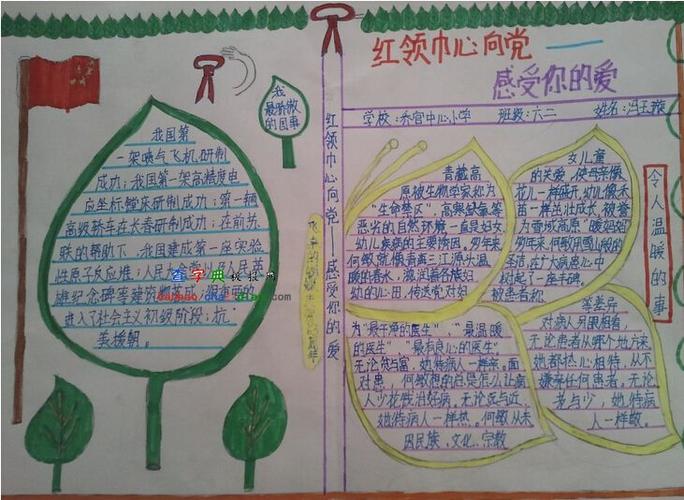 红领巾心向党——
感受你的爱
学校:乔官中心小学 班级:六二 姓名:冯玉璇
我
最骄傲
的国事
我国第
一架喷气飞机研制
成功;我国第一架高精度电
坐标镗床研制成功;第一辆
高级轿车在长春研制成功;在前苏
联的帮助下,我国建成第一座实验
性原子反应堆;人民大会堂
雄纪念碑等建筑群落成
进入了社会主义初级阶段;抗
美援朝。
红领巾心向党——感受你的爱
青藏高
原被生物学家称为
“生命禁区”,高寒缺氧等
恶劣的自然环境一直是妇女
幼儿疾病的主要诱因,多年来
何敏就像青藏三江源头温
暖的春水,滋润着各族妇
幼的心田,传送党对妇
女儿童
的关爱,使母亲像
花儿一样盛开,幼儿像禾
苗一样茁壮成长,被誉
为雪域高原“暖妈妈”
多年来,何敏用雪山般的
圣洁,在广大病患心中
树起了一座丰碑。
被患者称
为“最干净的医生”、“最温暖
的医生”、“最有良心的医生”。
无论贫与富,她待病人一样亲。面
对患,何敏想的总是怎么让病
人少花钱治好病,无论远与近,
她待病人一样热。何敏从未
因民族、文化、宗教
等差异
对病人另眼相看,
无论患者从哪个地方来
她都热心相待,从不
嫌弃任何患者。无论
老与少,她待病
人一样敬。
令人温暖的事
查字典